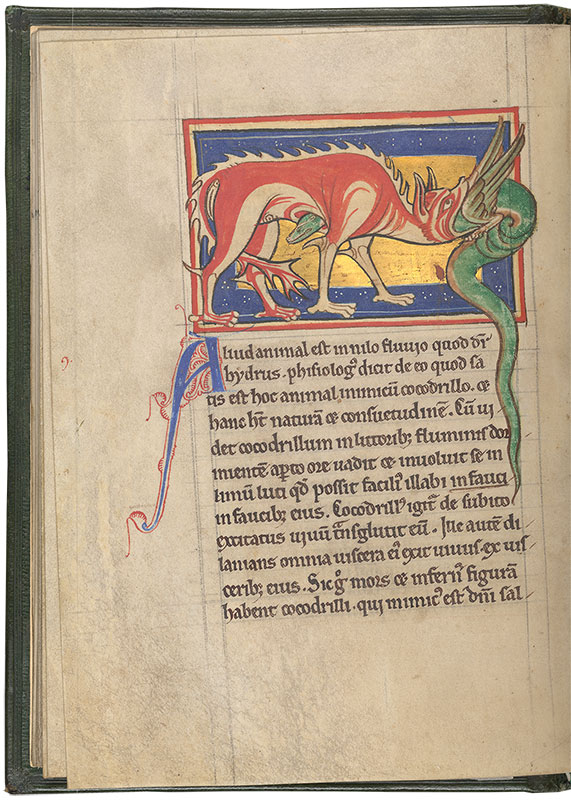 Aliud animal est in nilo fluuio quod dr̄
hydrus. phisiolog᾽ dicit de eo quod sa
tis est hoc animal inimicū cocodrillo. ⁊
hanc h̄t naturā ⁊ consuetudinē. Cū ui
det cocodrillum in litorib; fluminis dor
mientē aꝑto ore uadit ⁊ inuoluit se in
limū luti qđ possit facili᾽ illabi in fauci
in faucib; eius. Cocodrill᾽ igit᾽ de subito
excitatus uiuū t̄nsglutit eū. Ille autē di
lanians omnia uiscera ei᾽ exit uiuus ex uis
cerib; eius. Sic g° mors ⁊ infern᾽ figurā
habent cocodrilli. qui inimic᾽ est dn̄i sal